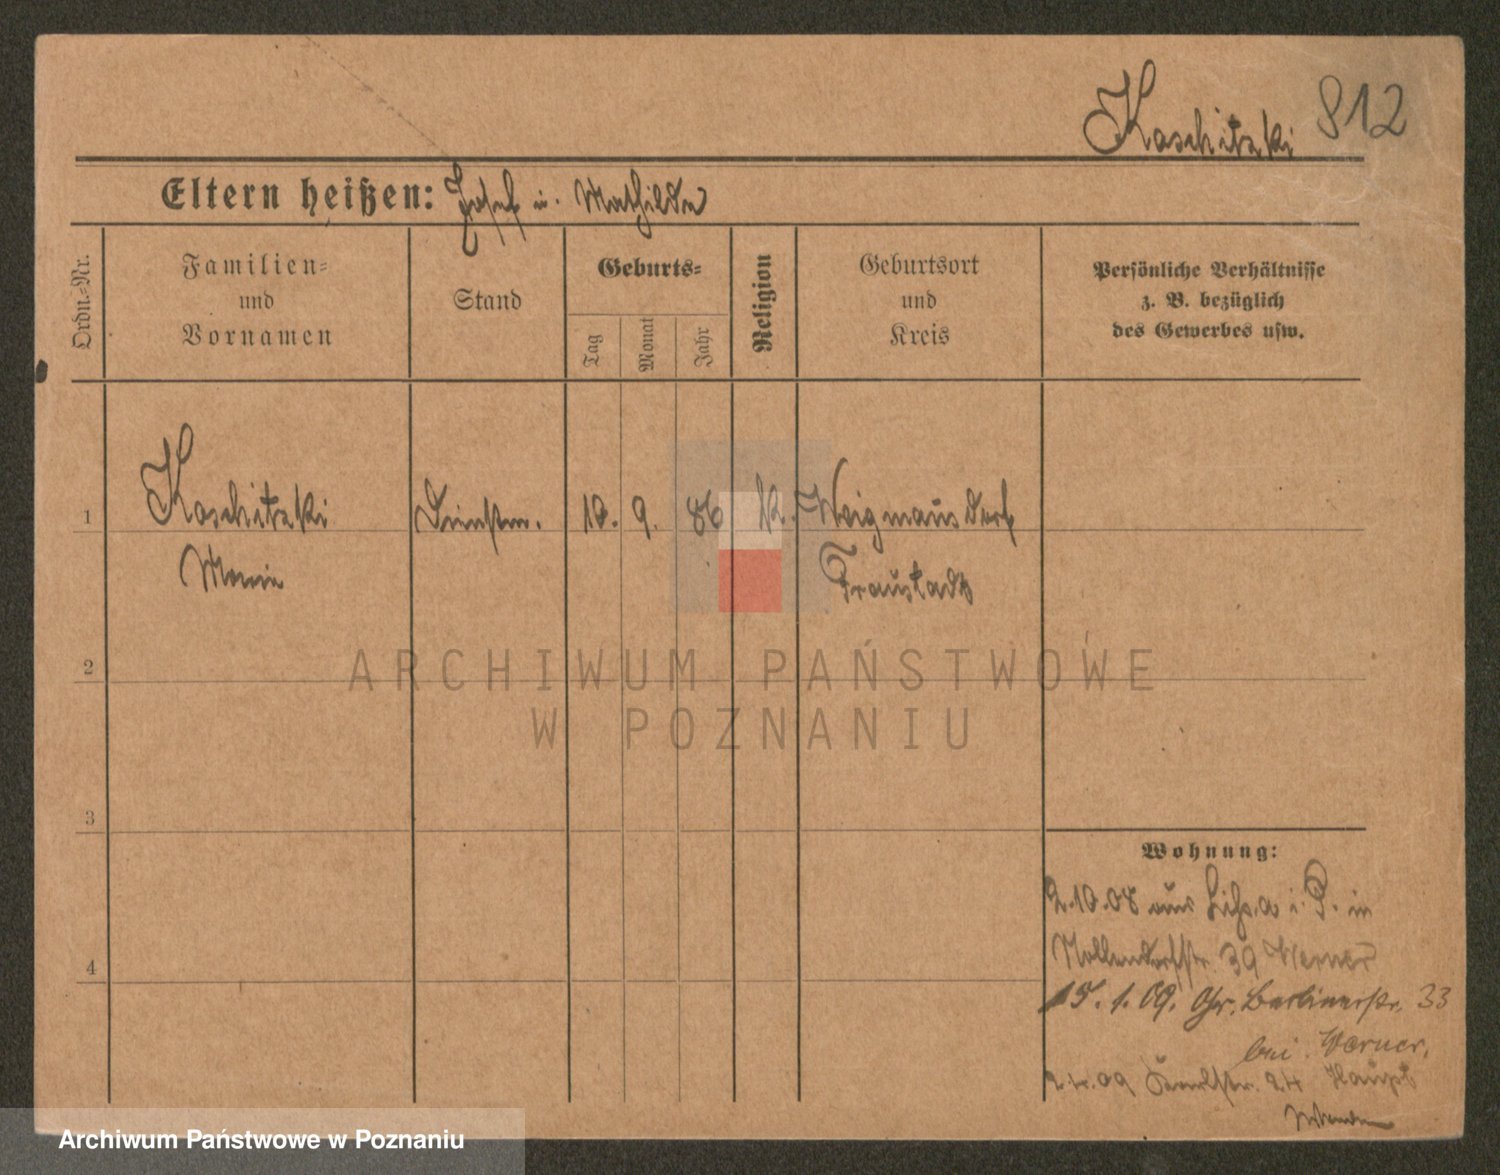 Koschitzki 812
Eltern heißen: Josef u. Mathilde
Ordn.-Nr.
Familien-
und
Vornamen
Stand
Geburts-
Tag
Monat
Jahr
Religion
Geburtsort
und
Kreis
Persönliche Verhältnisse
z. B. bezüglich
des Gewerbes usw.
1 Koschitzki Dienstm. 10. 9. 86 K. Weigmannsdorf
Maria Fraustadt
2
ARCHIWUM PAŃSTWOWE
W POZNANIU
3
Wohnung:
2.10.08 aus Lissa i. P. in
Nollendorfstr. 39 Werner
4
15. 1. 09. Gr. Berlinerstr. 33
bei Werner.
09 24 Haupt
Archiwum Państwowe w Poznaniu